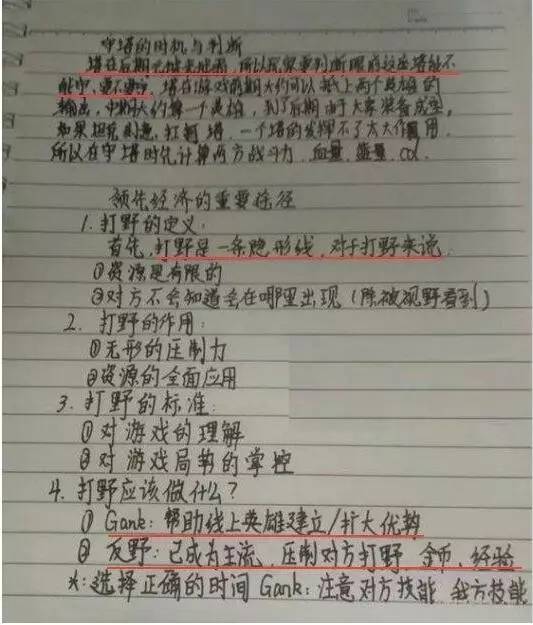 守塔的时机与判断
塔在后期无足无轻弱,所以玩家要判断眼前这座塔能不
能守,要不要守,塔在游戏前期大约可以抵上两个英雄的
输出,中期大约算一个英雄,到了后期由于大家装备成型,
如果坦克刻意,扛打塔,一个塔的发挥不了太大作用,
所以在守塔时优计算两方战斗力,血量,蓝量,cd.
领先经济的重要途径
1. 打野的定义:
首先,打野是一条隐形线,对于打野来说.
①资源是有限的
②对方不会知道会在哪里出现(除被视野看到)
2. 打野的作用:
①无形的压制力
②资源的全面应用
3. 打野的标准:
①对游戏的理解
②对游戏局势的掌控
4. 打野应该做什么?
① Gank: 帮助线上英雄建立/扩大优势
② 反野:已成为主流,压制对方打野 金币、经验
*:选择正确的时间 Gank:注意对方技能 我方技能